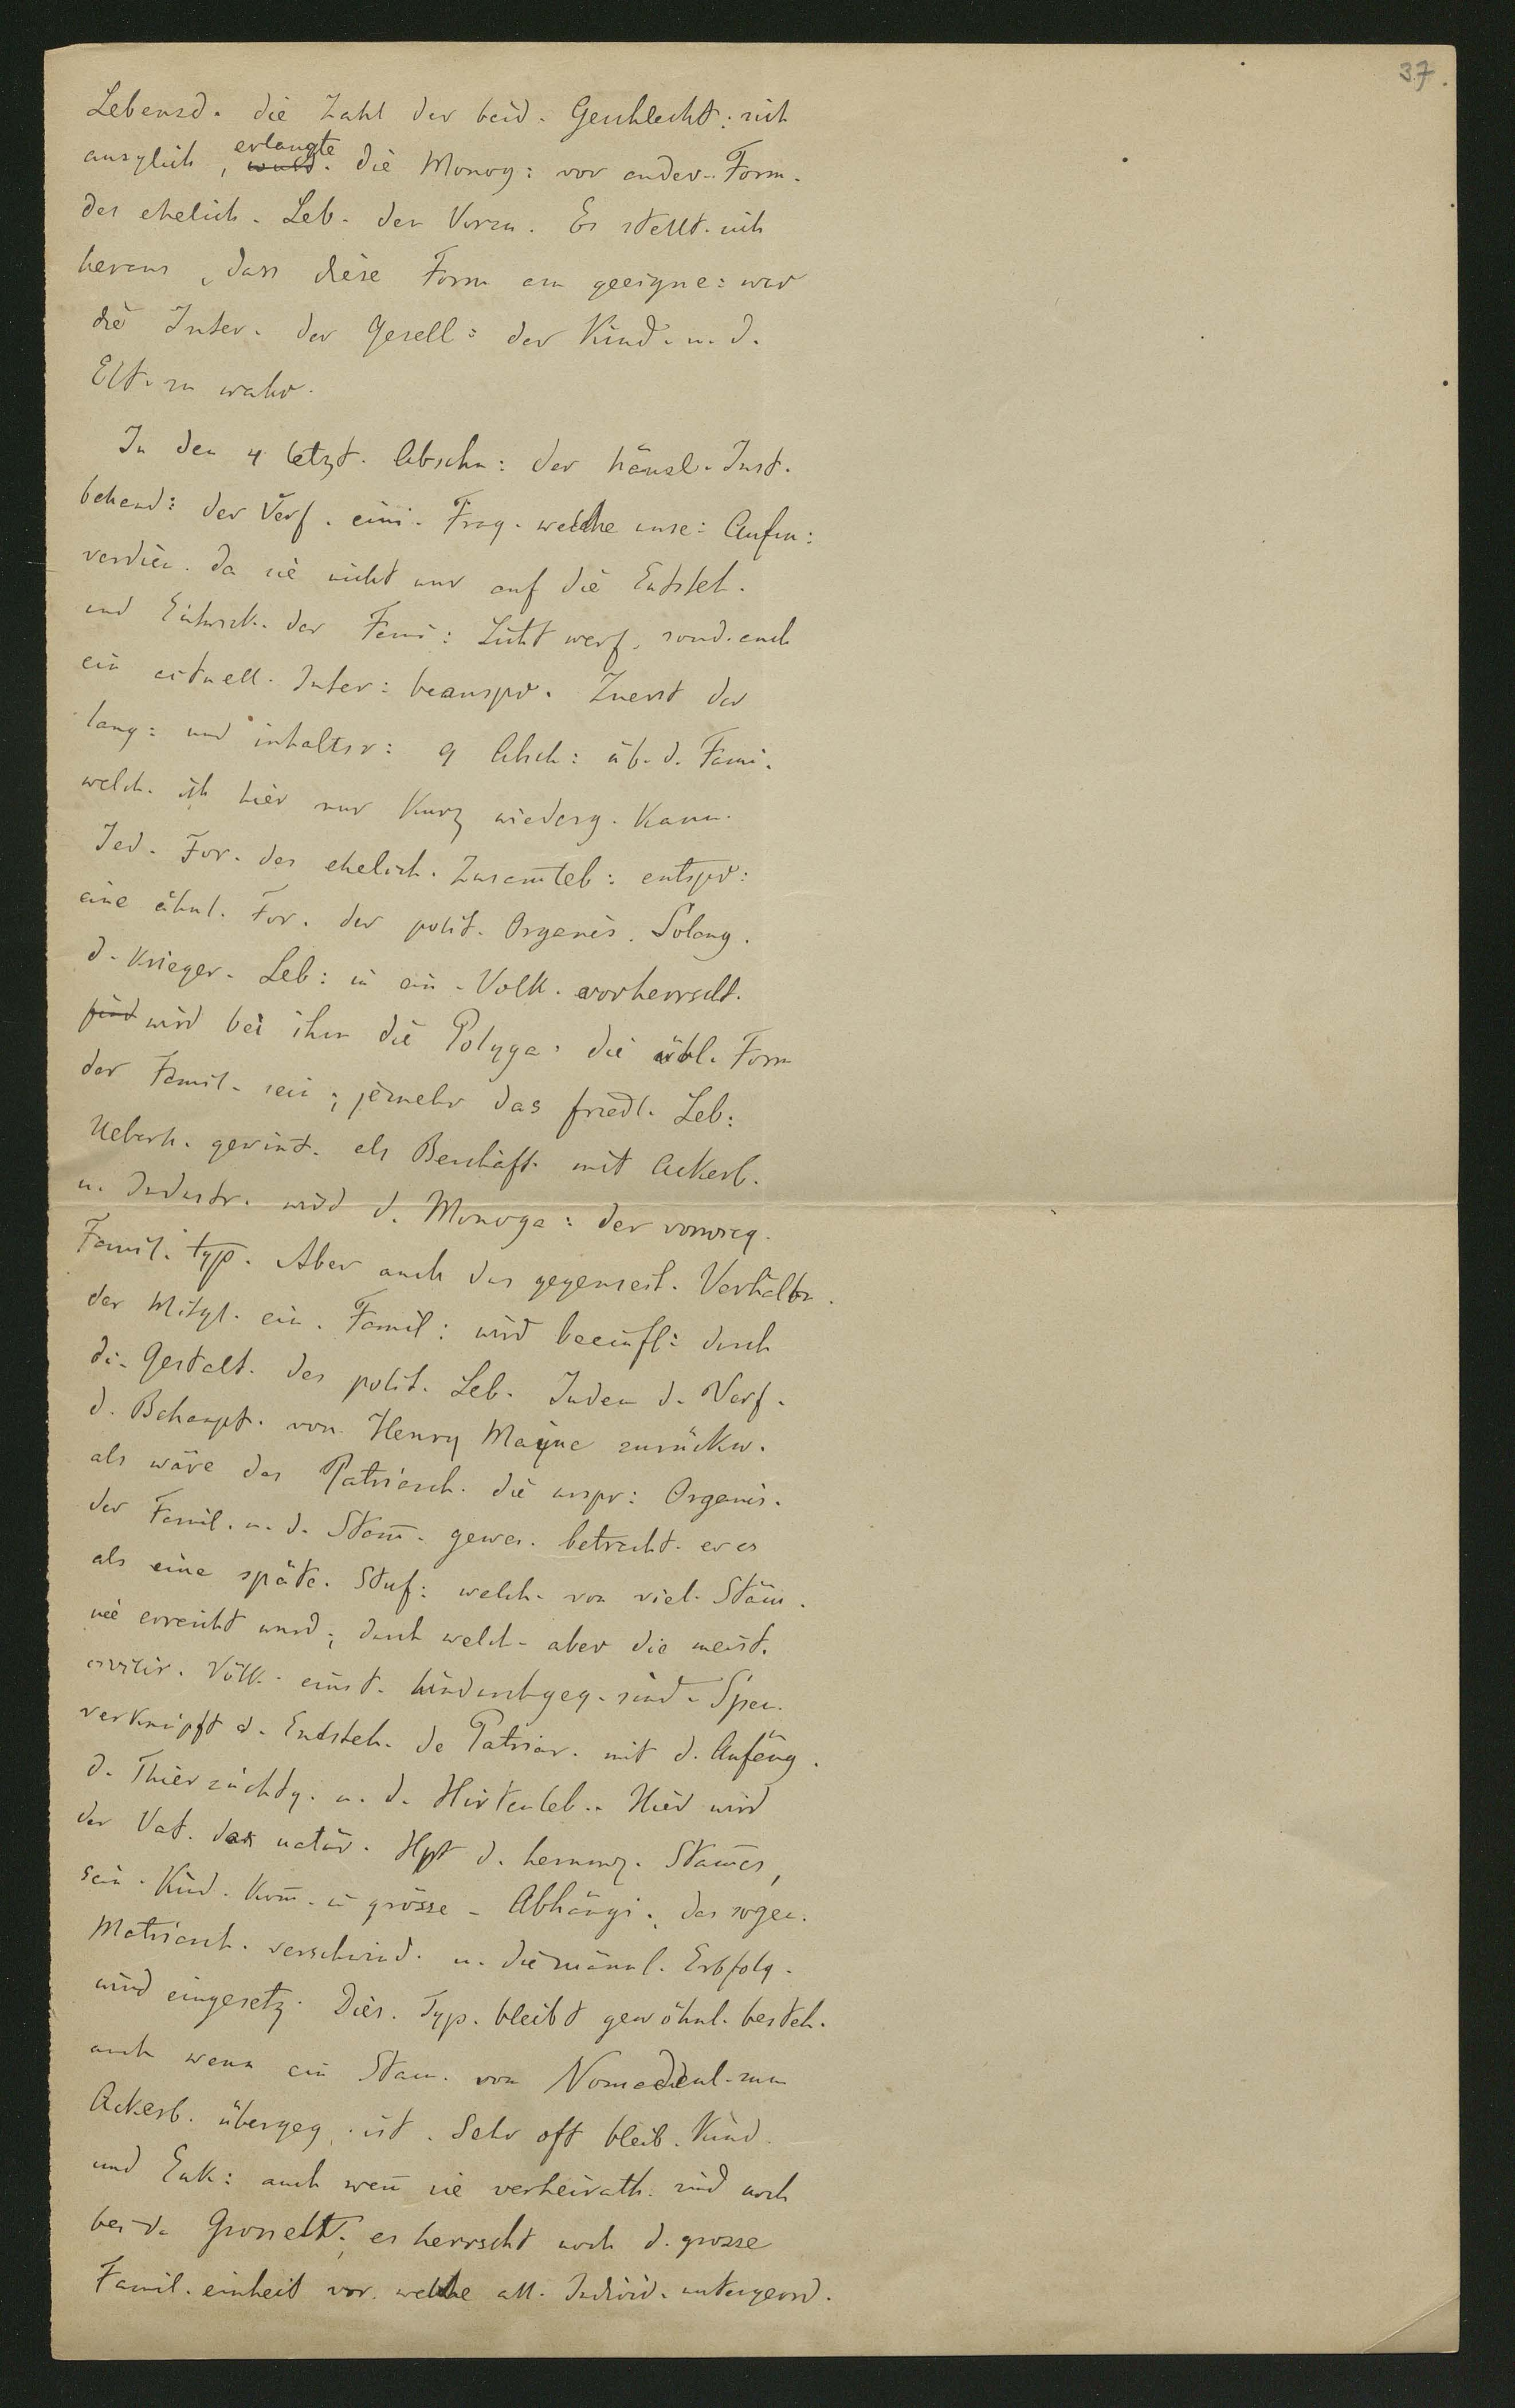 37.
Lebensd. die Zahl der beid. Geschlecht: sich
ausglich, erlangte wurd. die Monog: vor ander. Form.
des ehelich. Leb. den Vorzu. Es stellt. sich
heraus, dass diese Form am geeigne: war
die Inter. der Gesell: der Kind. u. d.
Elt. zu wahr.
In den 4 letzt. Abschn: der häusl. Inst.
behand: der Verf. eini. Frag. welche unse: Aufm:
verdien. da sie nicht nur auf die Entsteh.
und Entwick. der Fami: Licht werf, sond. auch
ein actuell. Inter: beanspr. Zuerst der
lang: und inhaltsr: 9 Absch: üb. d. Fami.
welch. ich hier nur kurz wiederg. kann.
Jed. For. des ehelich. Zusam̄leb: entspr:
eine ähnl. For. der polit. Organis. Solang.
d. krieger. Leb: in ein. Volk. vorherrscht.
find wird bei ihm die Polyga: die übl. Form
der Famil. sein; jemehr das friedl. Leb:
Ueberh. gewint. als Beschäft. mit Ackerb.
u. Industr. wird d. Monoga: der vorwieg.
Famil. typ. Aber auch das gegenseit. Verhältn.
der Mitgl. ein. Famil: wird beeinfl: durch
di. Gestalt. des polit. Leb. Indem d. Verf.
d. Behaupt. von Henry Mayne zurückw.
als wäre das Patriarch. die urspr: Organis.
der Famil. u. d. Stam̄. gewes. betracht. er es
als eine späte. Stuf: welch. von viel. Stäm̄.
nie erreicht wurd; durch welch. aber die meist.
civilis. Völk. einst. hindurchgeg. sind. Spen.
verknüpft d. Entsteh. de Patriar. mit d. Anfäng.
d. Thierzüchtg. u. d. Hirtenleb.. Hier wird
der Vat. das natür. Hpt d. herumz. Stam̄es,
sein. Kind. kom̄. in grösse. Abhängi. das sogen.
Matriarch. verschwind. u. die männl. Erbfolg.
wird eingesetz. Dies. Typ. bleibt gewöhnl. besteh.
auch wenn ein Stam. von Nomadenl. zum
Ackerb. übergeg. ist. Sehr oft bleib. Kind.
und Enk: auch wen̄ sie verheirath. sind noch
bei d. Grosselt. es herrscht noch d. grosse
Famil. einheit vor. welche all. Individ. untergeord.